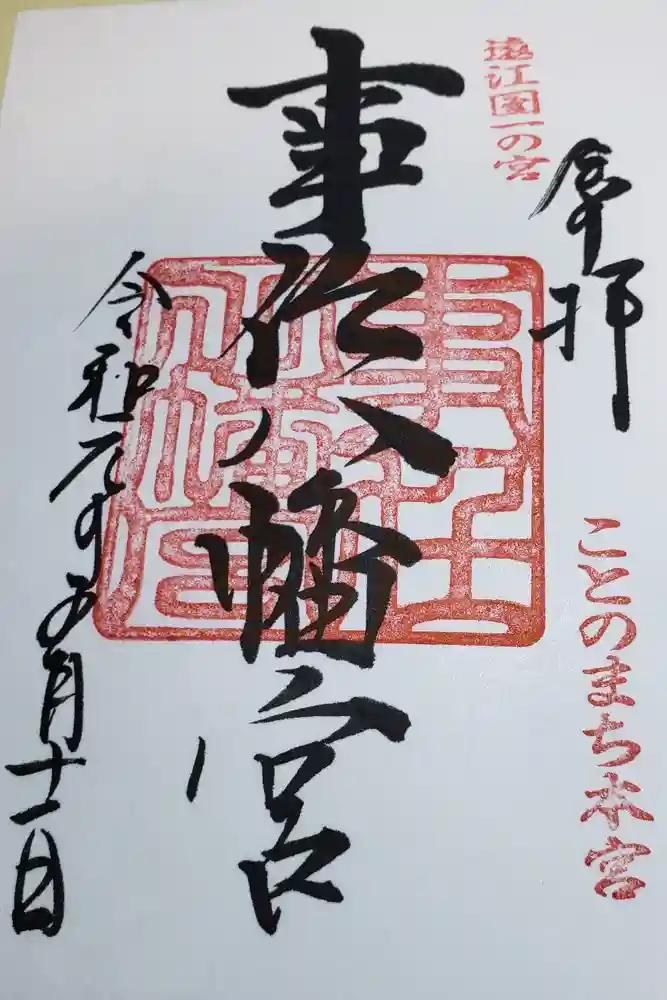 遠江國一の宮
奉拝
ことのまち本宮
事任八幡宮
令和元年五月十一日